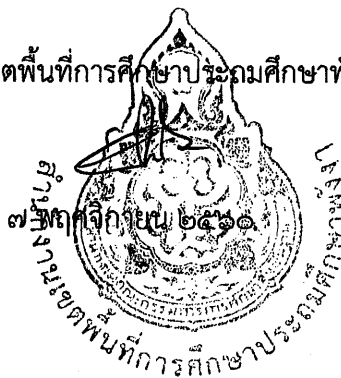 ตพื้นที่การศึกษาประถมศึกษาพั
๗ พฤศจิกายน ๒๕๖๐
สำนักงานเขตพื้นที่การศึกษาประถมศึกษาพังงา